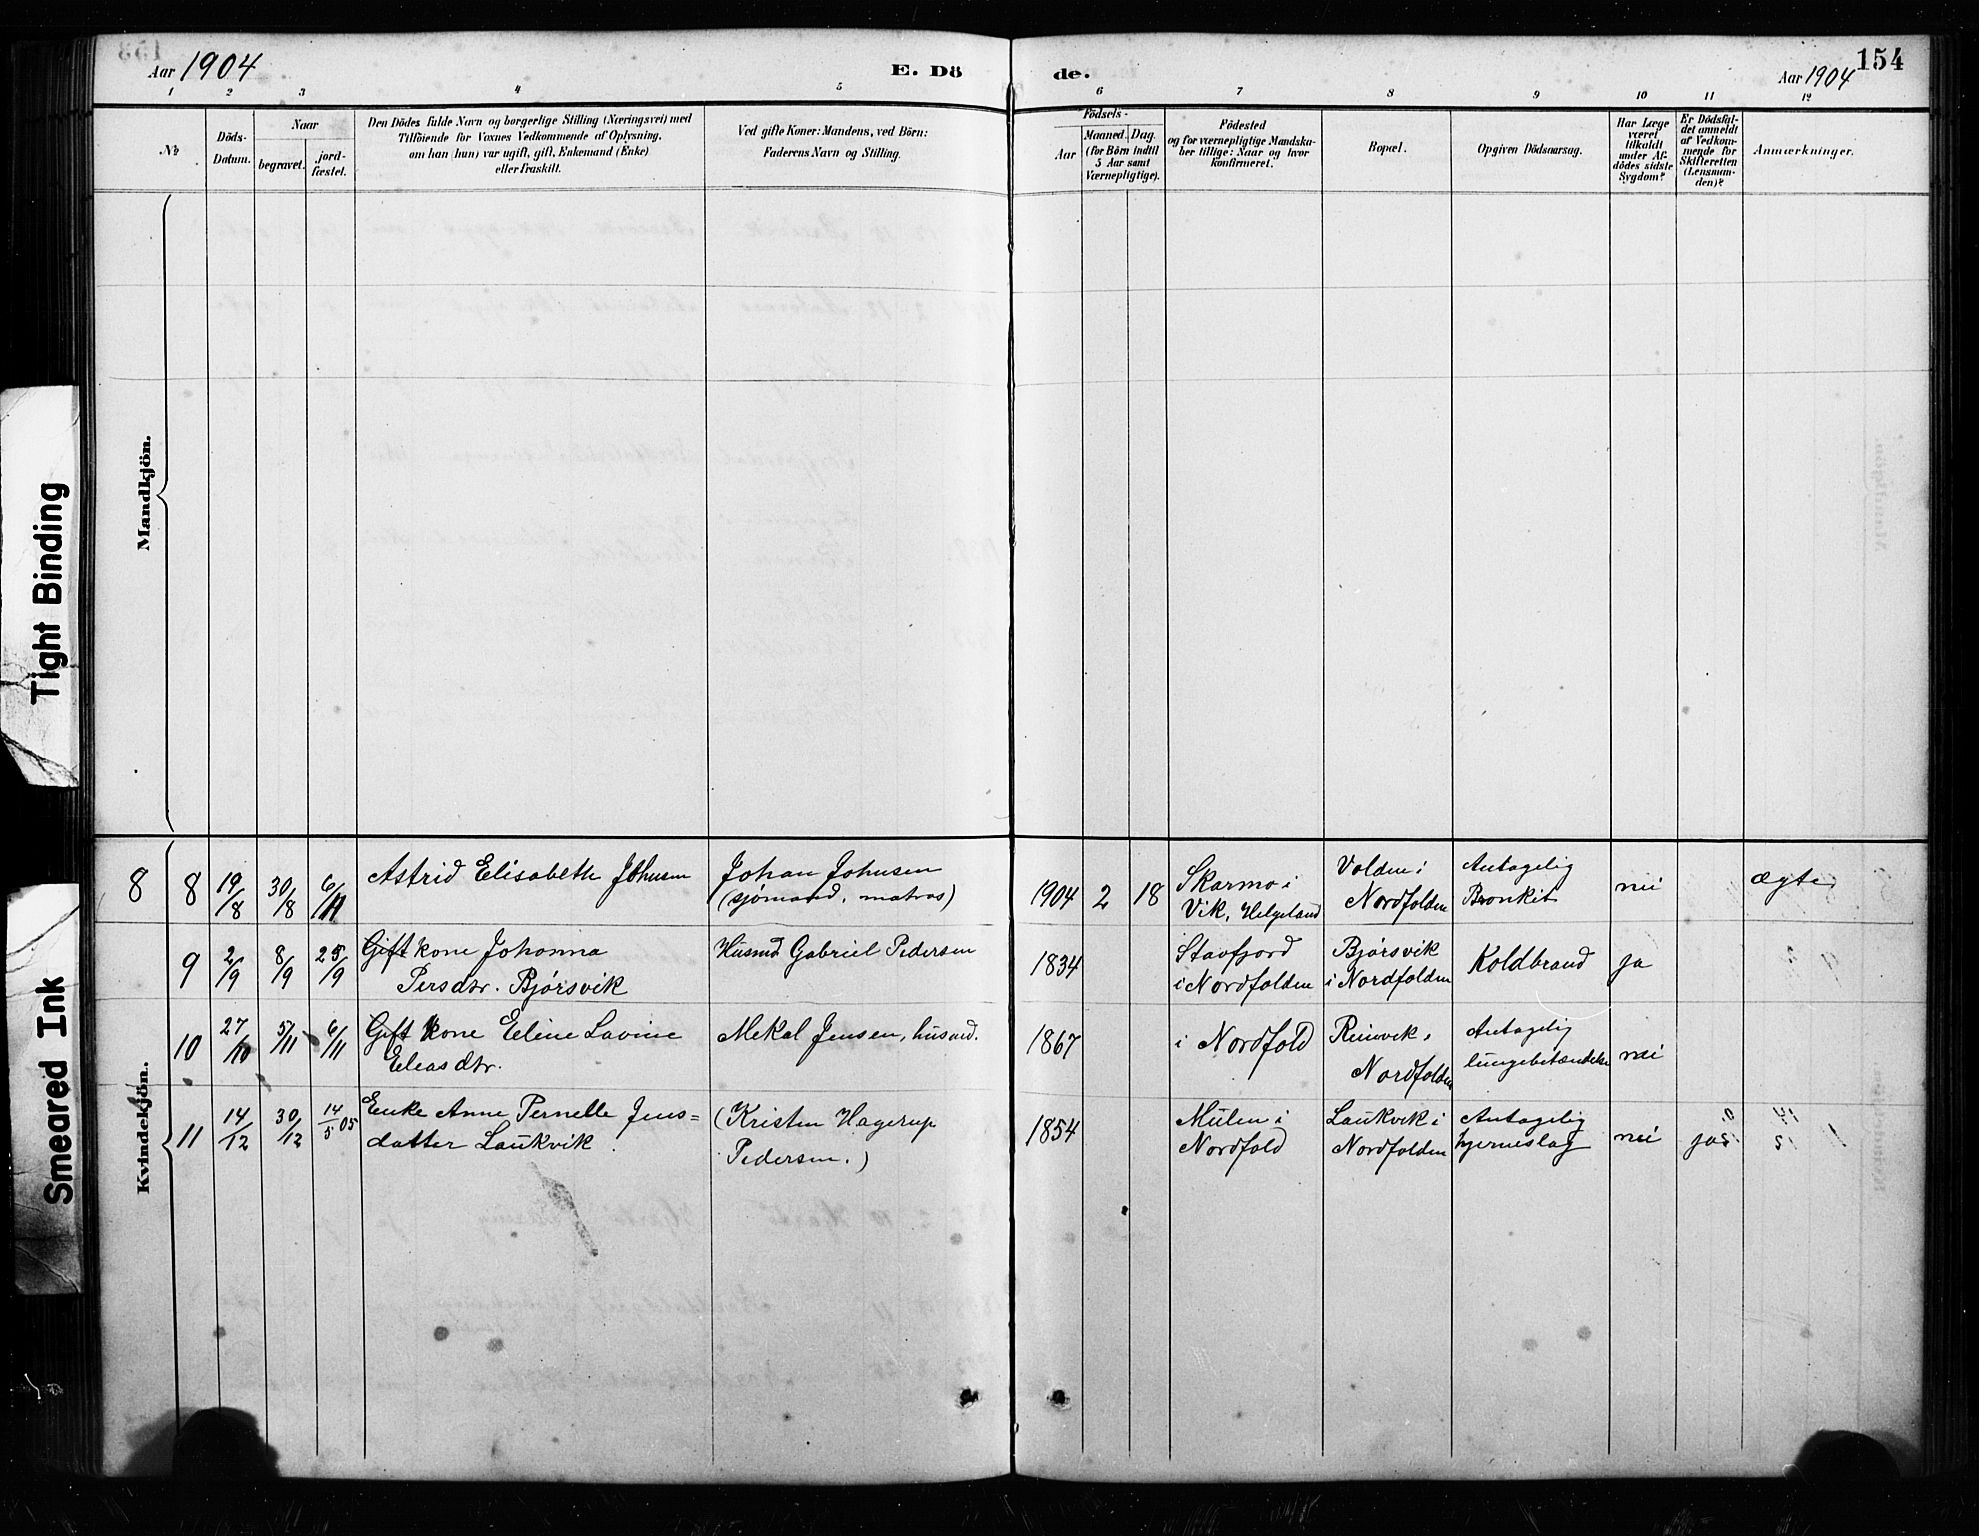 Aar 1904
E. Dö
de.
Aar 1904
154
1 2 3 4 5 6 7 8 9 10 11 12
No
Döds-
Datum.
Naar
begravet.
jord-
fæstet.
Den Dödes fulde Navn og borgerlige Stilling (Næringsvei) med
Tilföiende for Voxnes Vedkommende af Oplysning,
om han (hun) var ugift, gift, Enkemand (Enke)
eller fraskilt.
Ved gifte Koner: Mandens, ved Börn:
Faderens Navn og Stilling.
Födsels-
Aar
Maaned.
Dag.
(for Börn indtil
5 Aar samt
Værnepligtige).
Födested
og for værnepligtige Mandska-
ber tillige: Naar og hvor
konfirmeret.
Bopæl.
Opgiven Dödsaarsag.
Har Læge
været
tilkaldt
under Af-
dödes sidste
Sygdom?
Er Dödsfal-
det anmeldt
af Vedkom-
mende for
Skifteretten
(Lensman-
den)?
Anmærkninger.
Mandkjön.
Kvindekjön.
8 8 19/8 30/8 6/11 Astrid Elisabeth Johnsen
Johan Johnsen
(sjømand, matros)
1904 2 18
Skarmo i
Vik, Helgeland
Volden i
Nordfolden
Antagelig
Bronkit
nei
ægte
9 2/9 8/9 25/9 Gift kone Johanna
Persdtr. Bjørsvik
Husmd. Gabriel Pedersen
1834
Stavfjord
i Nordfolden
Bjørsvik
i Nordfolden
Koldbrand
ja
10 27/10 5/11 6/11 Gift kone Eline Lavine
Eleasdtr.
Mekal Jensen, husmd.
1867
i Nordfold
Reinvik i
Nordfolden
Antagelig
lungebetændelse
nei
11 14/12 30/12 14/5 05 Enke Anne Pernelle Jens=
datter Laukvik.
(Kristen Hagerup
Pedersen.)
1854
Mulen i
Nordfold
Laukvik i
Nordfolden
Antagelig
hjerneslag
nei
ja
Tight Binding
Smeared Ink